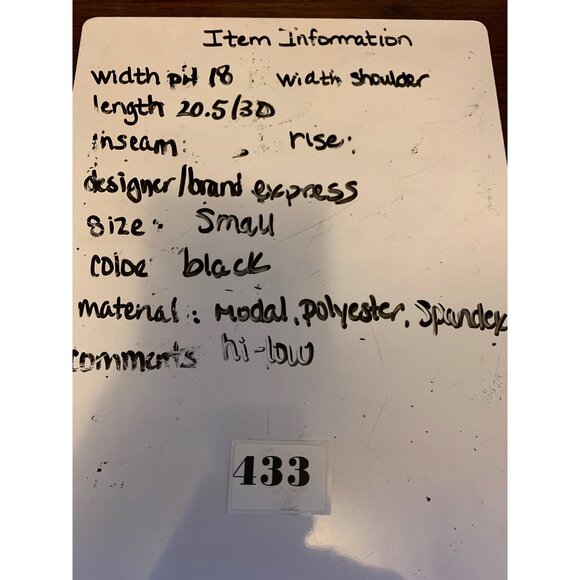 Item Information
width pit 18 width shoulder
length 20.5/30
inseam: rise:
designer/brand express
size: Small
color black
material: Modal, Polyester, Spandex
comments hi-low
433